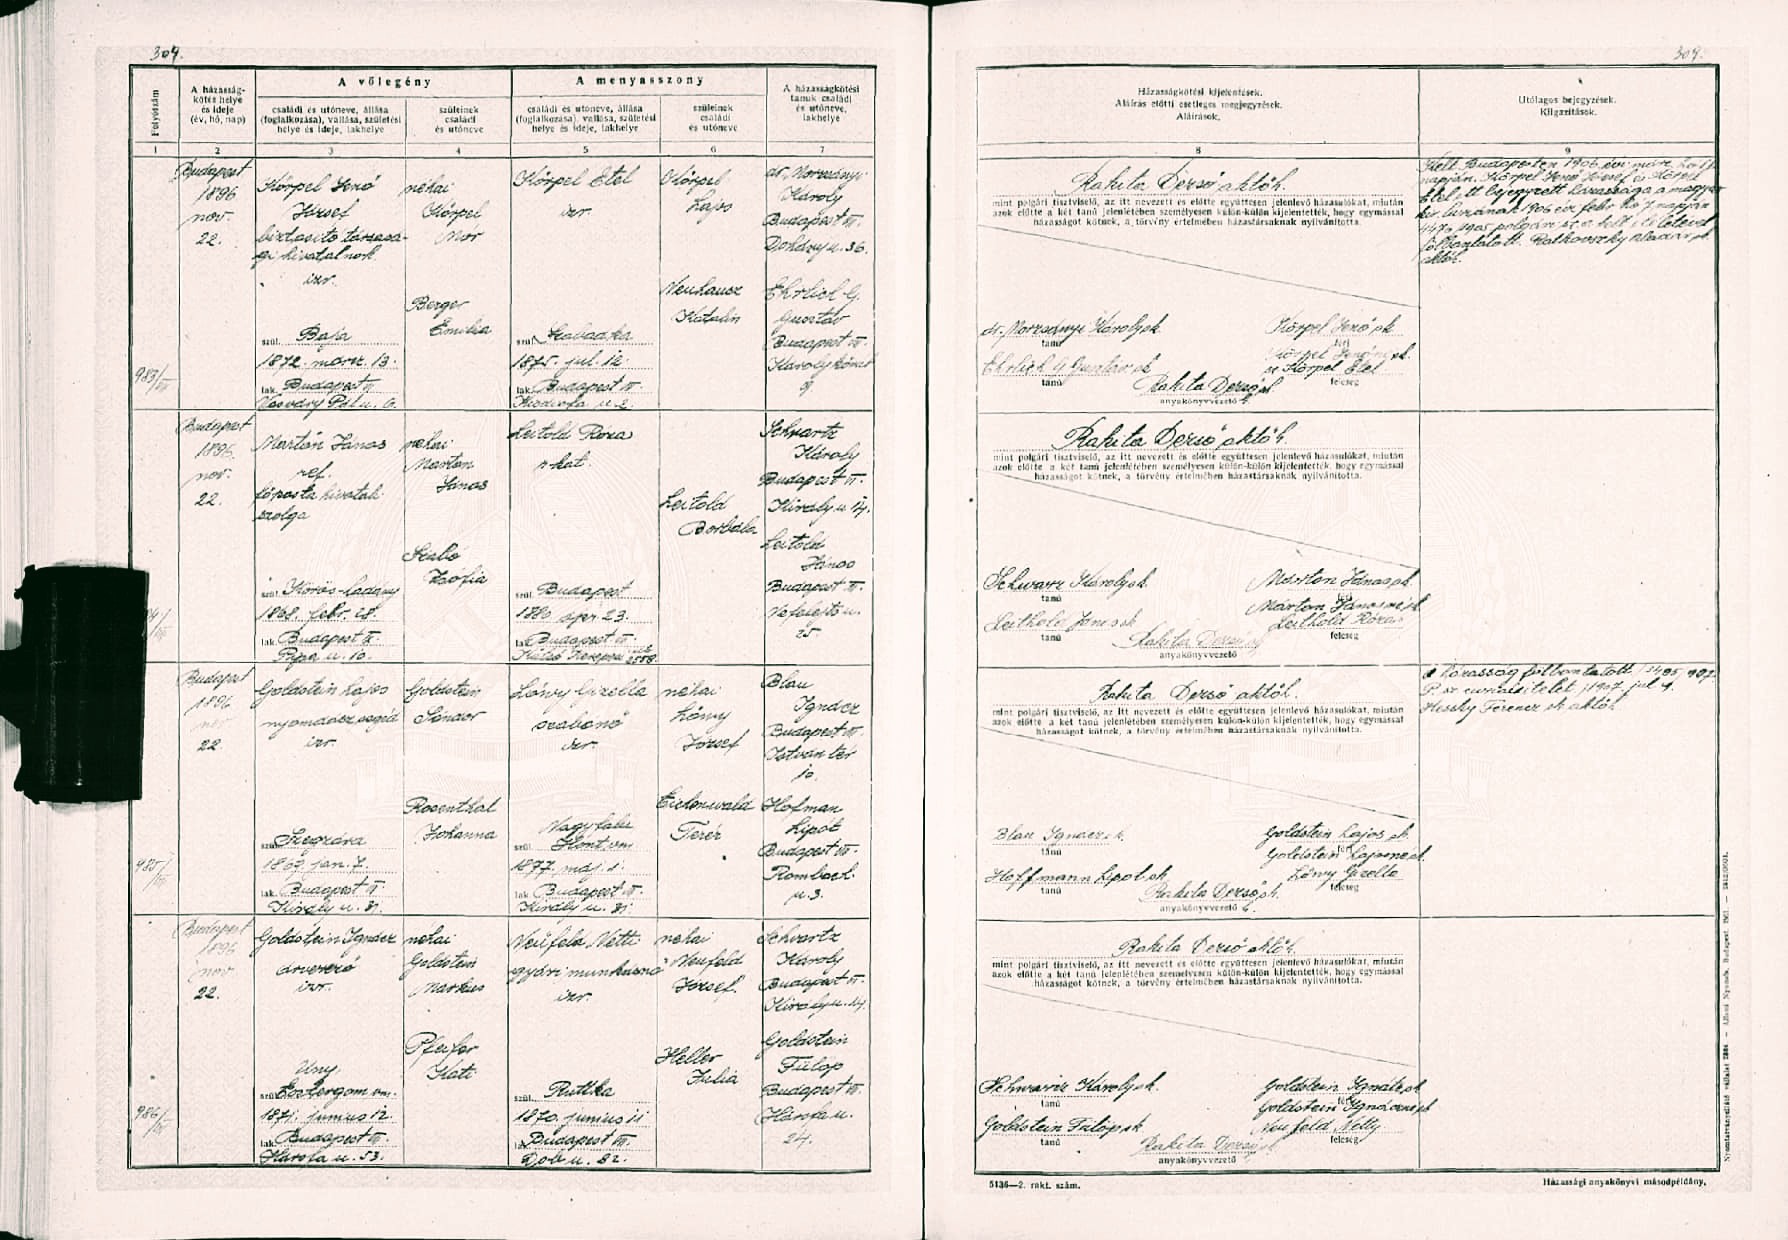 309.
Folyószám
A házasság-
kötés helye
és ideje
(év, hó, nap)
A vőlegény
családi és utóneve, állása
(foglalkozása), vallása, születési
helye és ideje, lakhelye
szüleinek
családi
és utóneve
A menyasszony
családi és utóneve, állása
(foglalkozása), vallása, születési
helye és ideje, lakhelye
szüleinek
családi
és utóneve
A házasságkötési
tanuk családi
és utóneve,
lakhelye
1 2 3 4 5 6 7
983/VII
Budapest
1896
nov.
22.
Körpel Jenő
József
biztosito társasá-
gi hivatalnok
izr.
szül. Baja
1872. márz. 13.
lak. Budapest VI.
Vasváry Pál u. 6.
néhai
Körpel
Mór
Berger
Emilia
Körpel Etel
izr.
szül. Szabadka
1875. jul. 12.
lak. Budapest VII.
Kisdiofa u. 2.
Körpel
Lajos
Neuhausz
Katalin
dr. Morzsányi
Károly
Budapest VII.
Dohány u. 36.
Ehrlich G.
Gusztáv
Budapest VII.
Károly körut
9.
Budapest
1896.
nov.
22.
Márton János
ref.
főposta hivatali
szolga
szül. Körös-Ladány
1868. febr. 28.
lak. Budapest VI.
Pipa u. 10.
néhai
Marton
János
Szabó
Zsófia
Leitold Róza
r. kat.
szül. Budapest
1880. ápr. 23.
lak. Budapest VII.
Leitold
Borbála
Schvartz
Károly
Budapest VI.
Király u. 14.
Leitold
János
Budapest VII.
Nefelejts u.
25.
985/VII
Budapest
1896
nov.
22.
Goldstein Lajos
nyomdász segéd
izr.
szül. Szegzárd
1869. jan. 7.
lak. Budapest VI.
Király u. 31.
Goldstein
Sándor
Rosenthal
Johanna
Lőwy Gizella
szabónő
izr.
Nagyfalu
szül. Hont vm.
1877. máj. 1.
lak. Budapest VI.
Király u. 31.
néhai
Lőwy
József
Eichenwald
Teréz
Blau
Ignácz
Budapest VII.
István tér
10.
Hofman
Lipót
Budapest VII.
Rombach
u. 3.
986/VII
Budapest
1896
nov.
22.
Goldstein Ignácz
árverező
izr.
Uny
szül. Esztergom vm.
1871. junius 12.
lak. Budapest VII.
Hársfa u. 53.
néhai
Goldstein
Markus
Pfeifer
Kati
Neüfeld Netti
gyári munkásnő
izr.
szül. Ruttka
1870. junius 11
lak. Budapest VII.
Dob u. 82.
néhai
Neufeld
József.
Heller
Julia
Schvartz
Károly
Budapest VI.
Király u. 14.
Goldstein
Fülöp
Budapest VII.
Hársfa u.
24.
309.
Házasságkötési kijelentések.
Aláírás előtti esetleges megjegyzések.
Aláírások.
Utólagos bejegyzések.
Kiigazítások.
8 9
Rakita Dezső aktőh.
mint polgári tisztviselő, az itt nevezett és előtte együttesen jelenlevő házasulókat, miután
azok előtte a két tanú jelenlétében személyesen külön-külön kijelentették, hogy egymással
házasságot kötnek, a törvény értelmében házastársaknak nyilvánította.
dr. Morzsányi Károly sk
tanú
Ehrlich G Gusztáv sk
tanú
Körpel Jenő sk
férj
Körpel Jenőné sk.
sz Körpel Etel
feleség
Rakita Dezső sk
anyakönyvvezető h.
Kelt Budapesten 1906 évi márc. hó 17
napján. Körpel Jenő József és Körpel
Etel itt bejegyzett házassága a magyar
kir. kuriának 1906 évi febr. hó 7 napján
4470/1905 polgári sz. a. kelt itéletével
fölbontatott. Ratkovszky Aladár sk.
aktőh.
Rakita Dezső aktőh.
mint polgári tisztviselő, az itt nevezett és előtte együttesen jelenlevő házasulókat, miután
azok előtte a két tanú jelenlétében személyesen külön-külön kijelentették, hogy egymással
házasságot kötnek, a törvény értelmében házastársaknak nyilvánította.
Schwarz Károly sk
tanú
Leithold János sk
tanú
Márton János sk.
férj
Márton Jánosné sk
Leithold Róza
feleség
Rakita Dezső sk
anyakönyvvezető
Rakita Dezső aktőh.
mint polgári tisztviselő, az itt nevezett és előtte együttesen jelenlevő házasulókat, miután
azok előtte a két tanú jelenlétében személyesen külön-külön kijelentették, hogy egymással
házasságot kötnek, a törvény értelmében házastársaknak nyilvánította.
Blau Ignácz sk.
tanú
Hoffmann Lipót sk
tanú
Goldstein Lajos sk.
férj
Goldstein Lajosné sk.
Lőwy Gizella
feleség
Rakita Dezső sk.
anyakönyvvezető h.
A házasság fölbontatott
P. sz curiai itélet, 1907. jul 9.
Hessky Ferencz sk aktőh
Rakita Dezső aktőh.
mint polgári tisztviselő, az itt nevezett és előtte együttesen jelenlevő házasulókat, miután
azok előtte a két tanú jelenlétében személyesen külön-külön kijelentették, hogy egymással
házasságot kötnek, a törvény értelmében házastársaknak nyilvánította.
Schwarz Károly sk.
tanú
Goldstein Fülöp sk
tanú
Goldstein Ignátz sk
férj
Goldstein Ignáczné sk
Neufeld Netty
feleség
Rakita Dezső sk
anyakönyvvezető
5136—2. rakt. szám.
Házassági anyakönyvi másodpéldány.